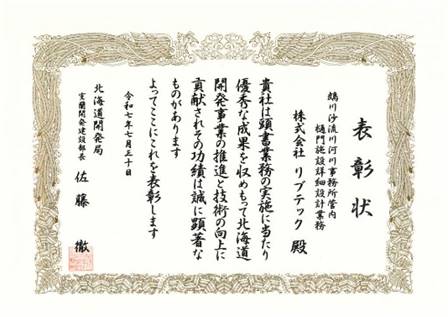 表彰状
鵡川沙流川河川事務所管内
樋門施設詳細設計業務
株式会社 リブテック 殿
貴社は頭書業務の実施に当たり
優秀な成果を収めもって北海道
開発事業の推進と技術の向上に
貢献されその功績は誠に顕著な
ものがあります
よってここにこれを表彰します
令和七年七月三十日
北海道開発局
室蘭開発建設部長 佐藤 徹